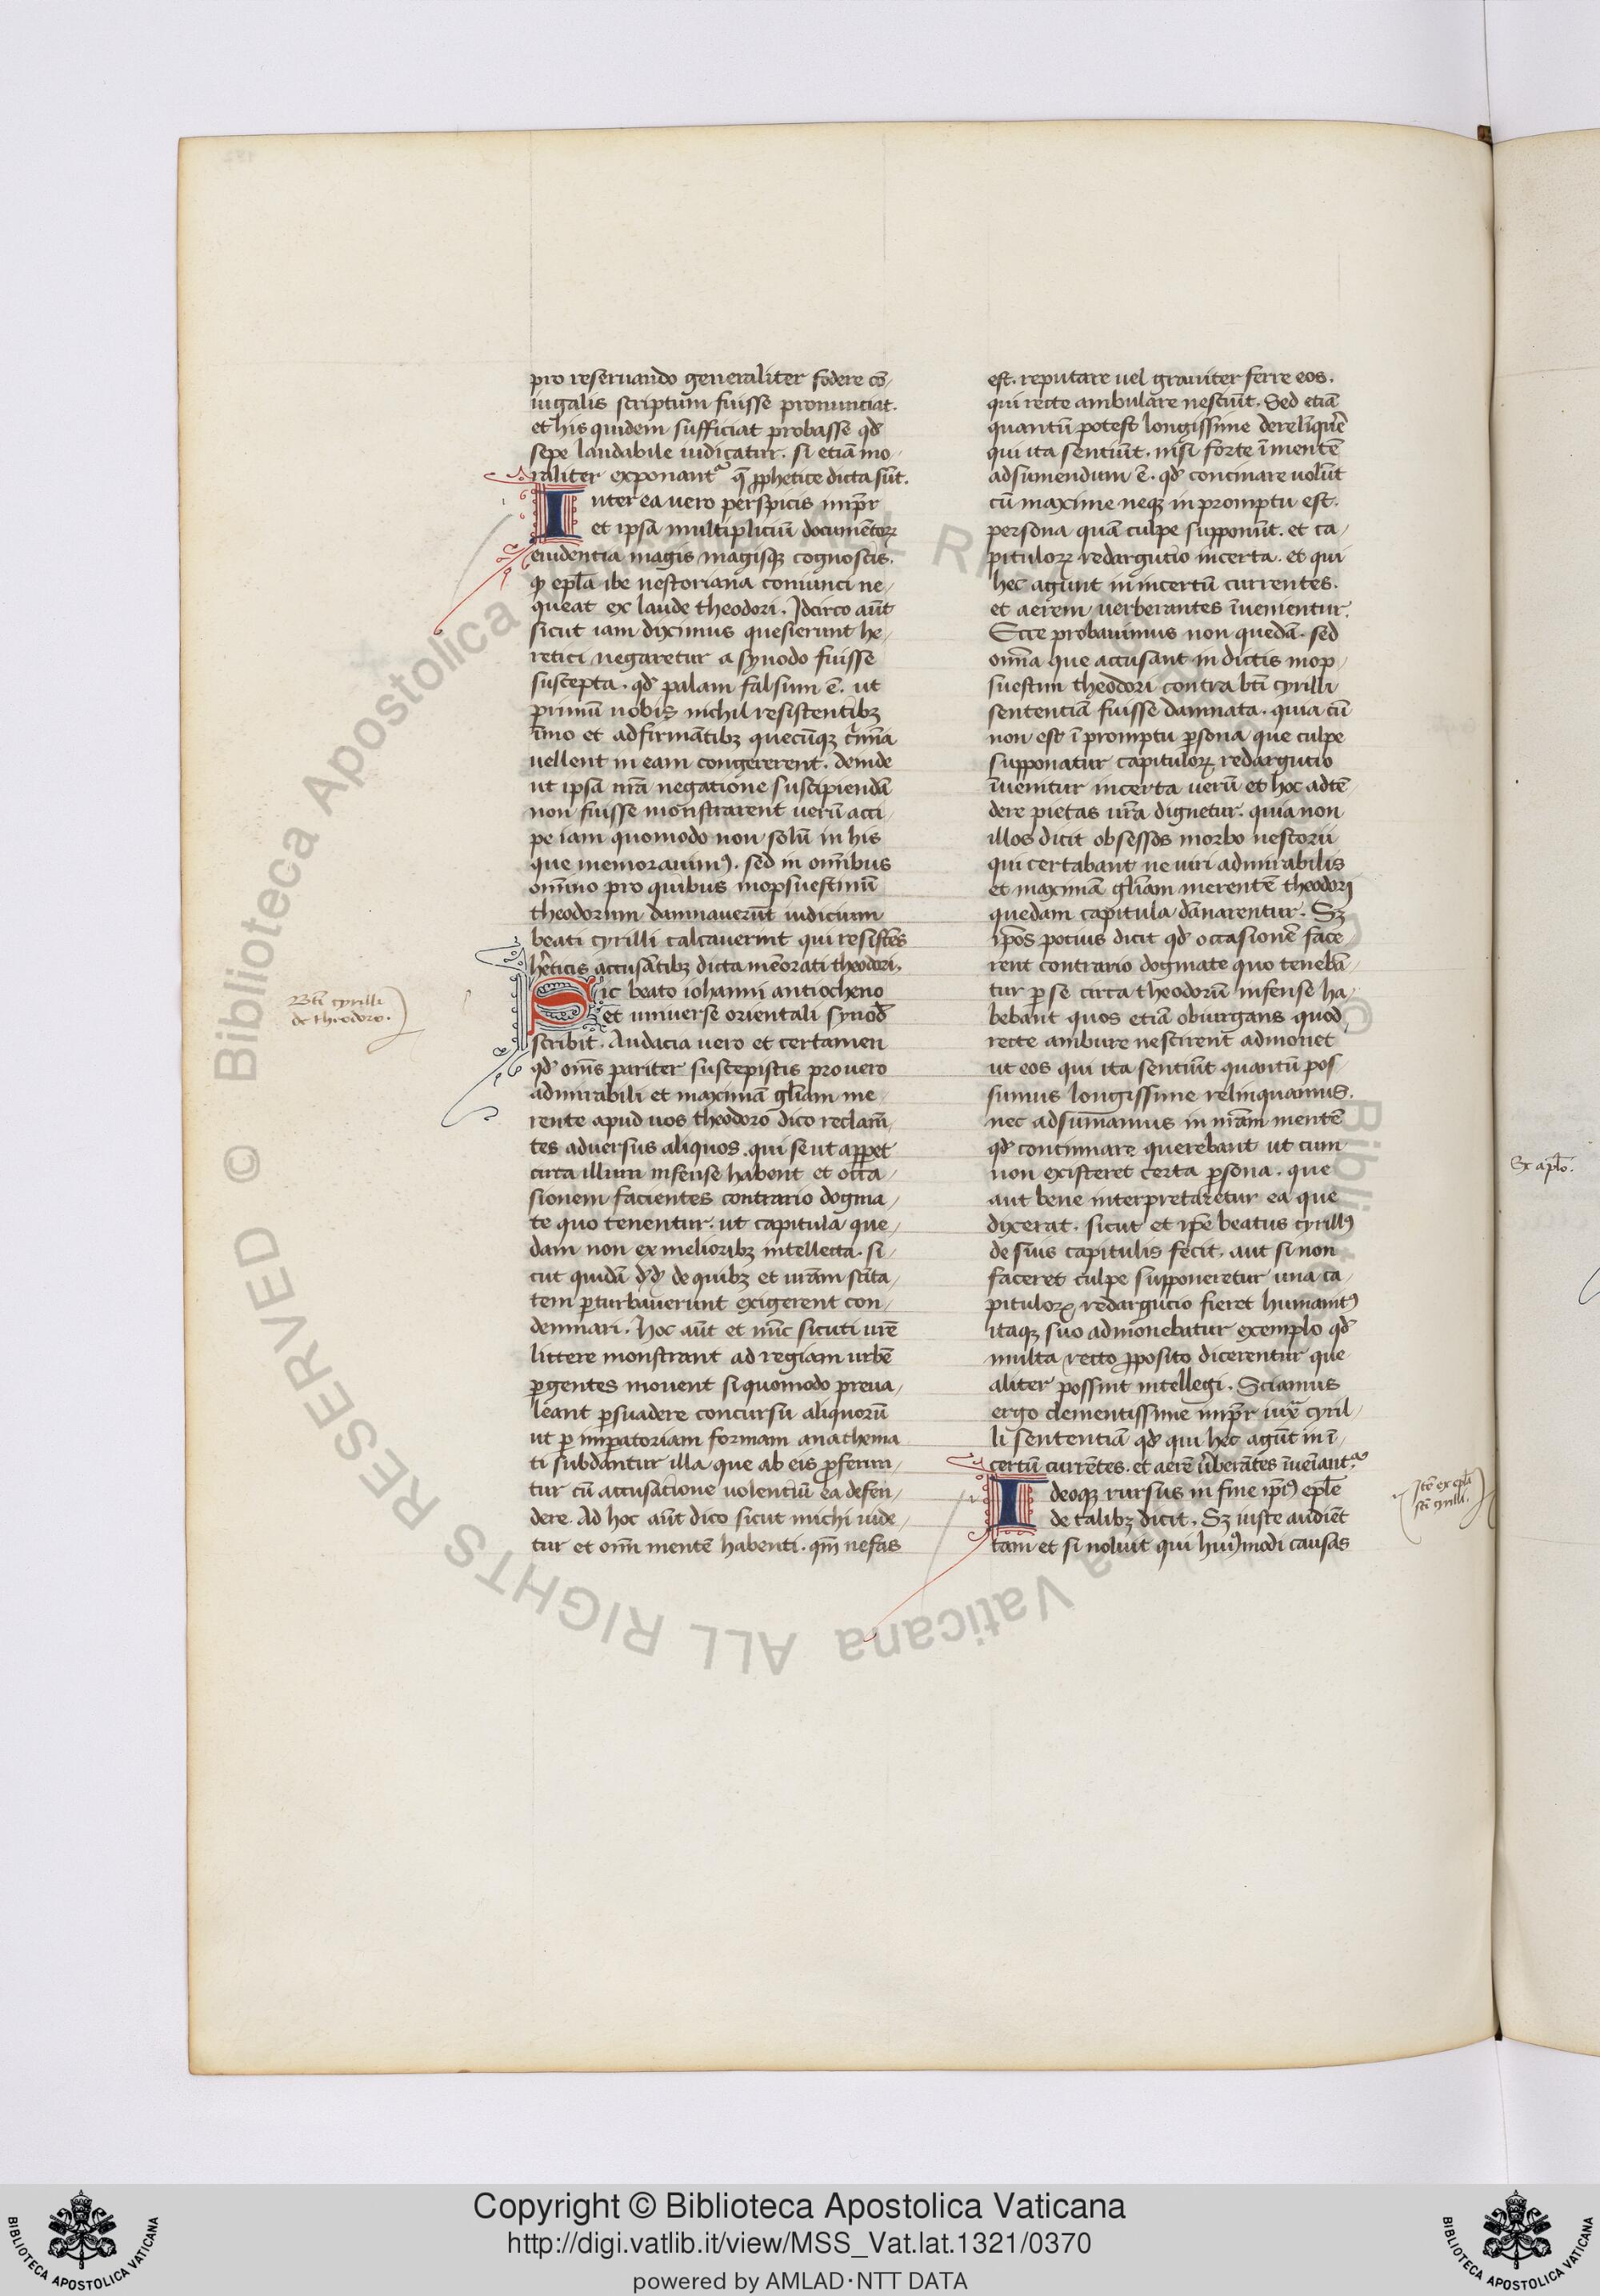 pro reseruando generaliter federe cō,
iugalis scriptum fuisse pronunciat.
et his quidem sufficiat probasse qđ
sepe laudabile iudicatur. si etiā mo,
raliter exponant᷑ q̄ ꝓphetice dicta sūt.
Inter ea uero perspicis impr̄
et ipsa multipliciū documētoꝝ
euidentia magis magisqꝫ cognoscis.
ꝙ epl̄a ibe nestoriana coniunci ne,
queat ex laude theodori. Idcirco aūt
sicut iam diximus quesierunt he,
retici negaretur a synodo fuisse
suscepta. qđ palam falsum ē. ut
primū nobis nichil resistentibꝫ
īmo et adfirmātibꝫ quecūqꝫ c̄mīa
uellent in eam congererent. deinde
ut ipsā nrā negatione suscipiendā
non fuisse monstrarent uerū acci,
pe iam quomodo non solū in his
que memorauimꝰ. sed in om̄ibus
om̄ino pro quibus mopsuestinū
theodorum damnauerūt iudicium
beati cyrilli calcauerint qui resistēs
hẽticis accusātibꝫ dicta mēorati theodori.
Sic beato iohanni antiocheno
et uniuerse orientali synođ
scribit. Audacia uero et certamen
qđ om̄s pariter suscepistis pro uero
admirabili et maximā gl̄iam me,
rente apud uos theodoro dico reclam̄,
tes aduersus aliquos. qui se ut apparet
circa illum infense habent et occa,
sionem facientes contrario dogma,
te quo tenentur. ut capitula que,
dam non ex melioribꝫ intellecta. si,
cut quidā đđ de quibꝫ et uram̄ scīta,
tem ꝑturbauerunt exigerent con,
demnari. hoc aūt et nūc sicuti urē
littere monstrant ad regiam urbē
ꝑgentes mouent si quomodo preua,
leant ꝑsuadere concursu aliquorū
ut ꝑ impatoriam formam anathema
ti subdantur illa que ab eis ꝓferun,
tur cū accusatione uolentiū ea defen,
dere. Ad hoc aūt dico sicut michi uide,
tur et om̄i mentē habenti. qm̄ nefas
est. reputare uel grauiter ferre eos.
qui recte ambulare nesciūt. Sed etiā
quantū potest longissime derelīqr̄e
qui ita sentiūt. nisi forte ī mentē
adsumendum ē. qđ concinare uolūt
cū maxime neqꝫ in promptu est.
persona quā culpe supponūt. et ca,
pituloꝝ redargutio incerta. et qui
hec agunt in incertū currentes.
et aerem uerberantes īuenientur.
Ecce probauimus non quedā. sed
om̄ia que accusant in dictis mop,
suestini theodori contra bti cyrilli
sententiā fuisse damnata. quia cū
non est ī promptu ꝑsona que culpe
supponatur capituloꝝ redargutio
īuenitur incerta uerū et hoc adtē,
dere pietas ur̄a dignetur. quia non
illos dicit obsessos morbo nestorii
qui certabant ne uiri admirabilis
et maximā gl̄iam merentē theodori
quedam capitula dānarentur. Sꝫ
ip̄os potius dicit qđ occasionē face
rent contrario dogmate quo tenebā,
tur ꝑ se circa theodorū infense ha,
bebant quos etiā obiurgans quod
recte ambure nescirent admonet
ut eos qui ita sentiūt quantū pos,
sumus longissime relinquamus.
nec adsumamus in nram̄ mentē
qđ concinnare querebant ut cum
non existeret certa ꝑsona. que
aut bene interpretaretur ea que
dixerat. sicut et ip̄e beatus cyrillꝰ
de suis capitulis fecit. aut si non
faceret culpe supponeretur una ca,
pituloꝝ redargutio fieret humanitꝰ
itaqꝫ suo admonebatur exemplo qđ
multa recto ꝓposito dicerentur que
aliter possint intellegi. Sciamus
ergo clementissime impr̄ iux̄ cyril,
li sententiā qđ qui hec agūt in ī,
certū currētes. et aerē ūberātes īueīant᷑.
Ideoqꝫ rursus in fine ip̄iꝰ epl̄e
de talibꝫ dicit. Sꝫ iuste audiēt
tam et si noluit qui huiꝰmodi causas
Bti cyrilli
de theodoro.
Itē ex epl̄a
scī cyrilli.
Sc̄ ap̄lo.
Copyright © Biblioteca Apostolica Vaticana
http://digi.vatlib.it/view/MSS_Vat.lat.1321/0370
powered by AMLAD·NTT DATA
BIBLIOTECA APOSTOLICA VATICANA
BIBLIOTECA APOSTOLICA VATICANA
© Biblioteca Apostolica Vaticana ALL RIGHTS RESERVED